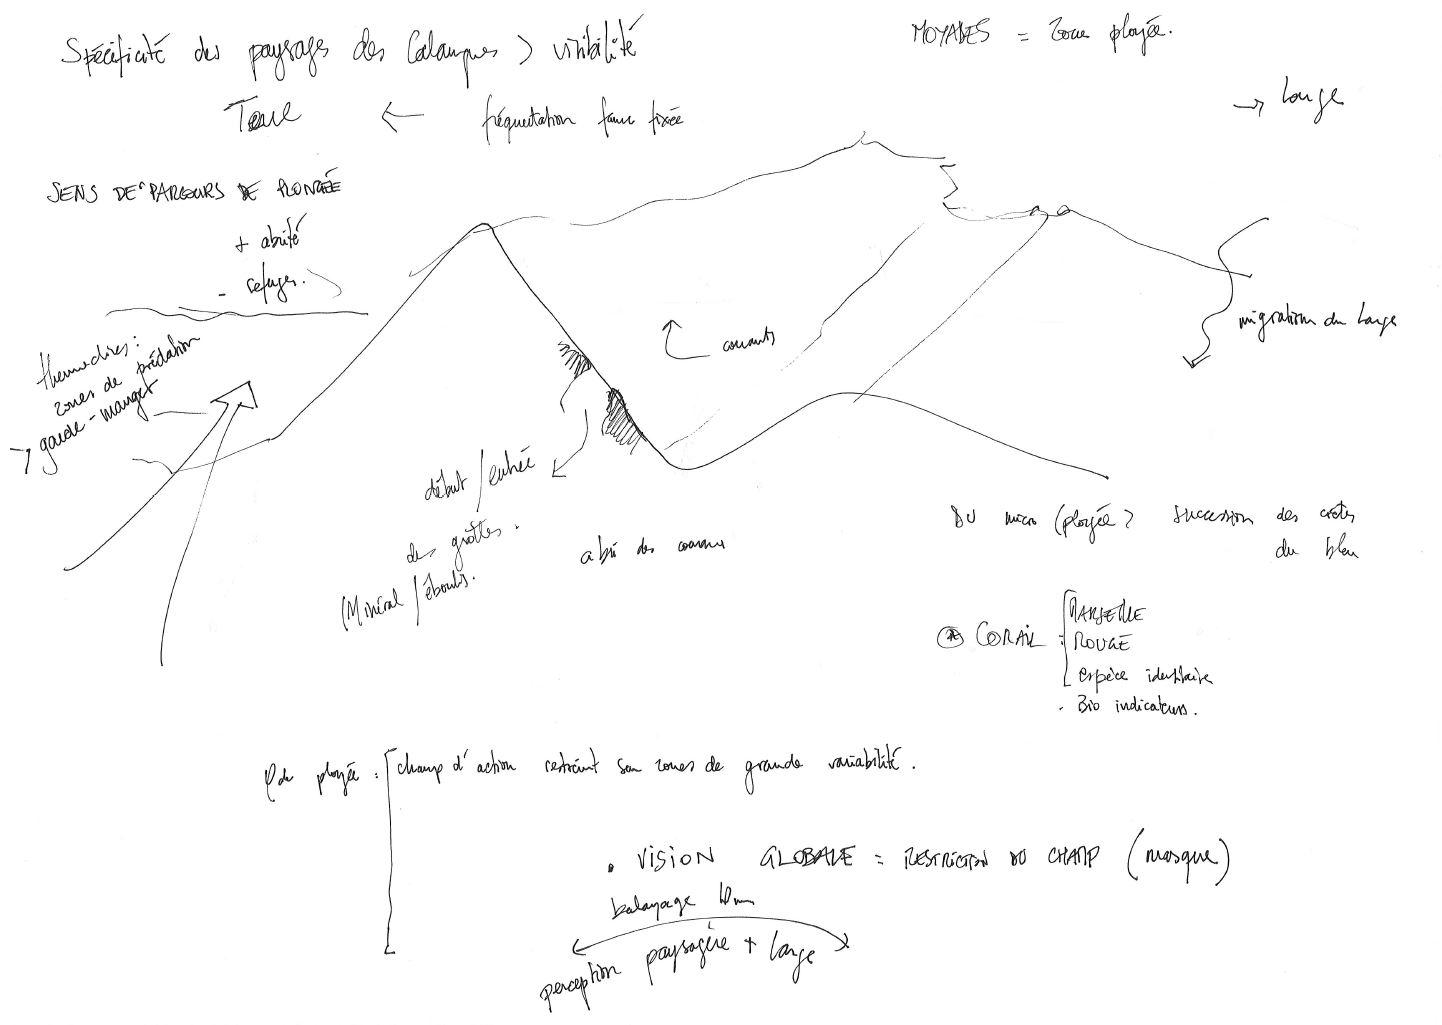 Spécificité des paysages des Calanques > visibilité
MOYADES = Zone plongée.
→ Large
Terre ← fréquentation faune fixée
SENS DE PARCOURS DE PLONGÉE
+ abrité
- refuges.
thermoclines :
zones de prédation
→ garde-manger
courants
migration du Large
début / entrée
des grottes.
(Minéral / éboulis.
abri des courants
DU micro (plongée) succession des crêtes
du bleu
CORAIL : MARSEILLE
ROUGE
espèce identitaire
. Bio indicateurs.
plongée : champ d'action restreint zones de grande variabilité.
. VISION GLOBALE = RESTRICTION DU CHAMP (masque)
balayage 40m
perception paysagère + large